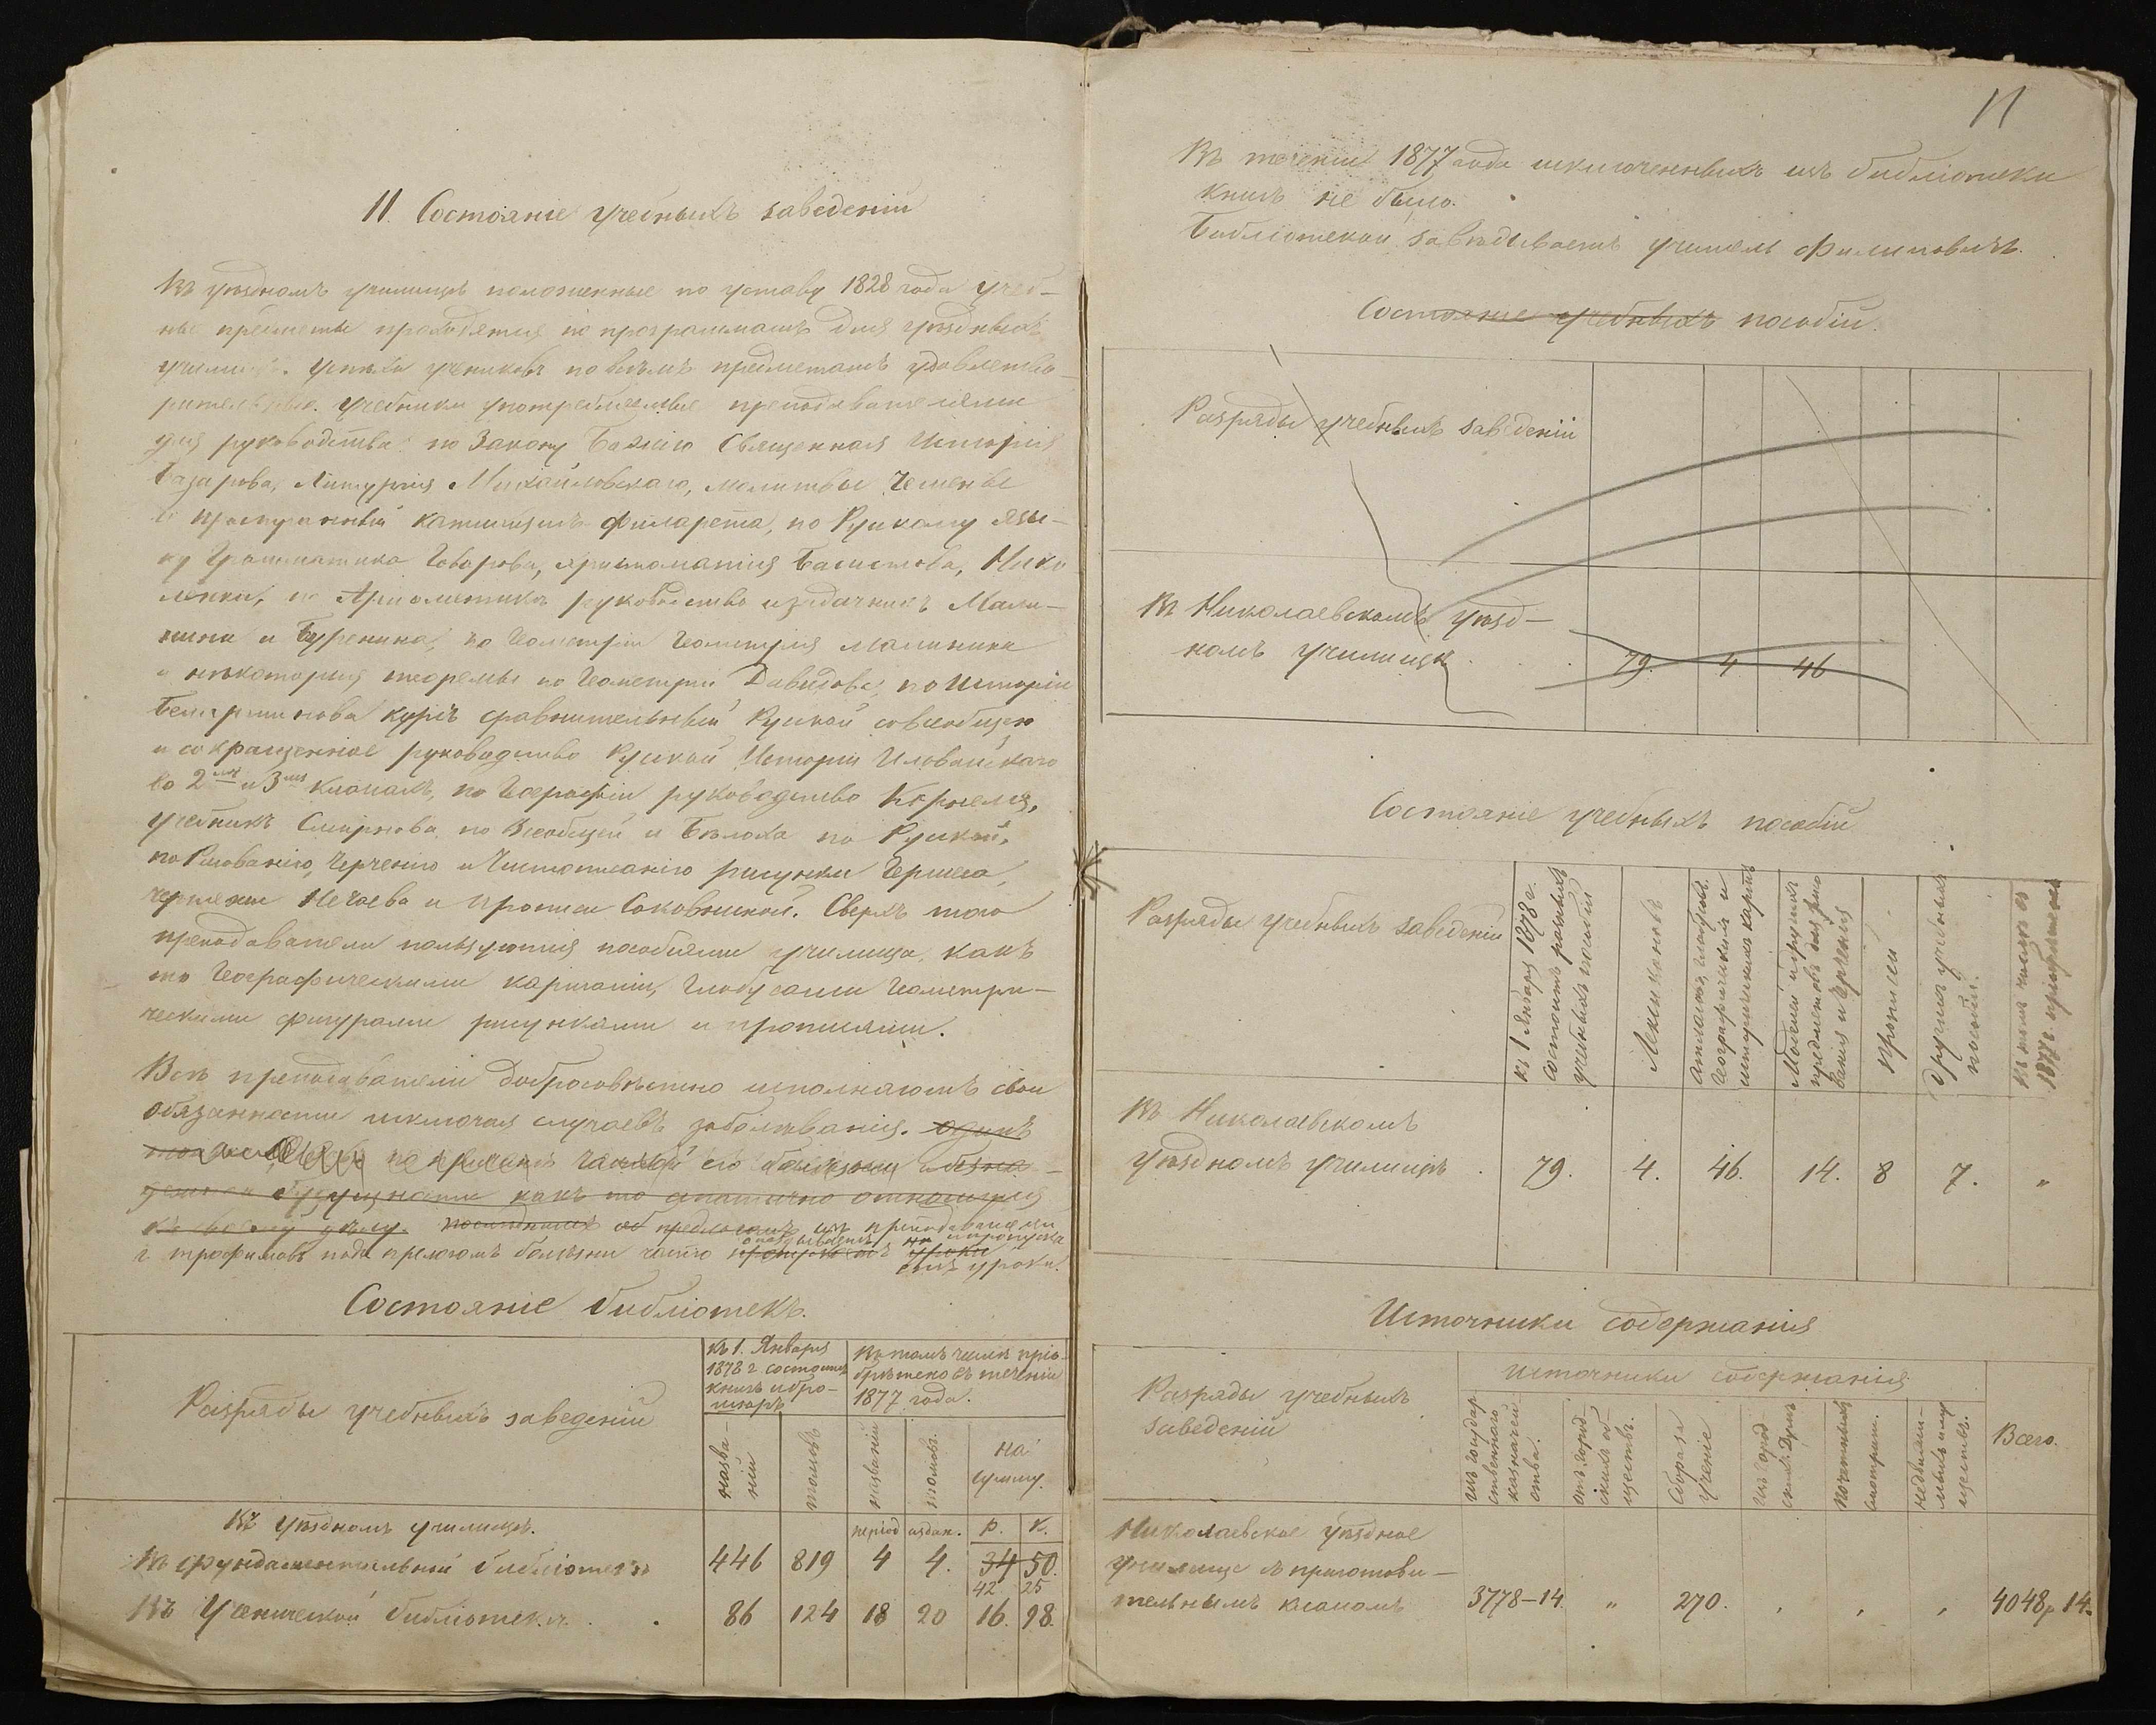 11. Состояніе учебныхъ заведеній
Въ уѣздномъ училищѣ положенные по уставу 1828 года учеб-
ные предметы проходятся по программамъ для уѣздныхъ
училищъ. Успѣхи учениковъ по всѣмъ предметамъ удовлетво-
рительные. Учебники употребляемые преподавателями
для руководства: по Закону Божію Священная Исторія
Базарова, Литургія Михайловскаго, молитвы
и пространный катихизисъ Филарета, по Рускому язы-
ку Грамматика Говорова, христоматія Басистова, Нико
ленки, по Ариѳметикѣ руководство и задачникъ Мали-
нина и Буренина, по Геометріи Геометрія Малинина
и нѣкоторыя теоремы по Геометріи Давидова, по Исторіи
Беллярминова курсъ сравнительный Руской со всеобщею
и сокращенное руководство Руской Исторіи Иловайскаго
во 2мъ и 3мъ классахъ, по Географіи руководство Корнеля,
учебникъ Смирнова по Всеобщей и Бѣлоха по Руской,
по Рисованію, Черченію и Чистописанію рисунки Гермеса,
чертежи Нечаева и прописи Соковниной. Сверхъ того
преподаватели пользуются пособіями училища, какъ
то Географическими картами, глобусами Геометри-
ческими фигурами рисунками и прописями.
Всѣ преподаватели добросовѣстно исполняютъ свои
обязанности исключая случаевъ заболѣванія. одинъ
по причинѣ частой его болѣзни
какъ то апатично относится
къ своему дѣлу. изъ преподавателей
г. Трофимовъ подъ предлогомъ болѣзни часто пропускаетъ уроки
уроки.
Состояніе библіотекъ.
Разряды учебныхъ заведеній
Къ 1. Января
1878 г. состоитъ
книгъ и бро-
шюръ
Въ томъ числѣ прiо-
брѣтено въ теченіи
1877 года.
назва-
ній
томовъ
названій
томовъ.
на
сумму.
Въ уѣздномъ училищѣ.
період издан. р. к.
Въ фундаментальной библіотекѣ 446 819 4 4. 34 50.
42 25
Въ Ученической библіотекѣ . . 86 124 18 20 16. 98.
11
Въ теченіи 1877 года исключенныхъ изъ библіотеки
книгъ не было.
Библіотекой завѣдываетъ учитель Филиповичъ.
Состояніе учебныхъ пособій.
Разряды учебныхъ заведеній
Въ Николаевскомъ уѣзд-
номъ училищѣ . . 79. 4 46
Состояніе учебныхъ пособій
Разряды учебныхъ заведеній
къ 1 Января 1878 г.
состоитъ разныхъ
учебныхъ пособій
Лексиконовъ
Атласовъ, глобусовъ.
Географическихъ и
историческихъ картъ
Моделей и другихъ
предметовъ для рисо
ванія и черченія
прописей
Другихъ учебныхъ
пособій.
въ томъ числѣ въ
1877 г. пріобрѣтено
Въ Николаевскомъ
уѣздномъ училищѣ . 79. 4. 46. 14. 8 7. "
Источники содержанія
Разряды учебныхъ
заведеній
Источники содержанія
изъ государ
ственнаго
казначей
ства.
отъ город-
скихъ об
ществъ.
Сбора за
ученіе
изъ город
скихъ Думъ
почетныхъ
смотрит.
недвижи-
мыхъ иму
ществъ.
Всего.
Николаевское уѣздное
училище съ приготови-
тельнымъ класомъ 3778-14 " 270. , , , 4048 р 14.